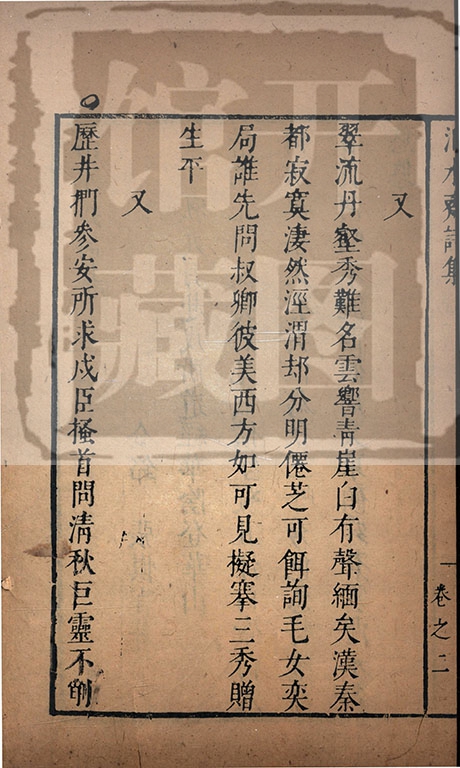 又
翠流丹壑秀難名雲響青崖白有聲緬矣漢秦
都寂寞淒然涇渭却分明僊芝可餌詢毛女奕
局誰先問叔卿彼美西方如可見擬搴三秀贈
生平
又
歷井捫參安所求戍臣搔首問清秋巨靈不削
卷之二
开图馆藏